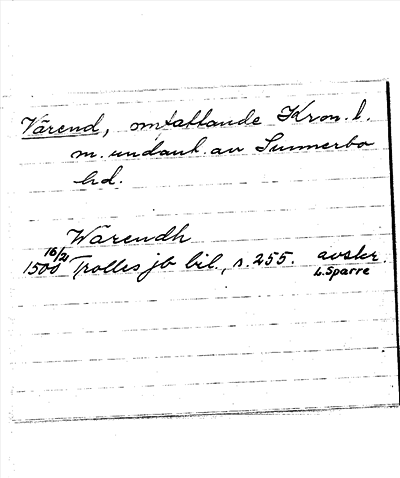 Värend, omfattande Kron. l.
m. undant. av Sunnerbo
hd.
Wärendh
1500 16/21 Trolles jb bil., s. 255. avskr.
L. Sparre